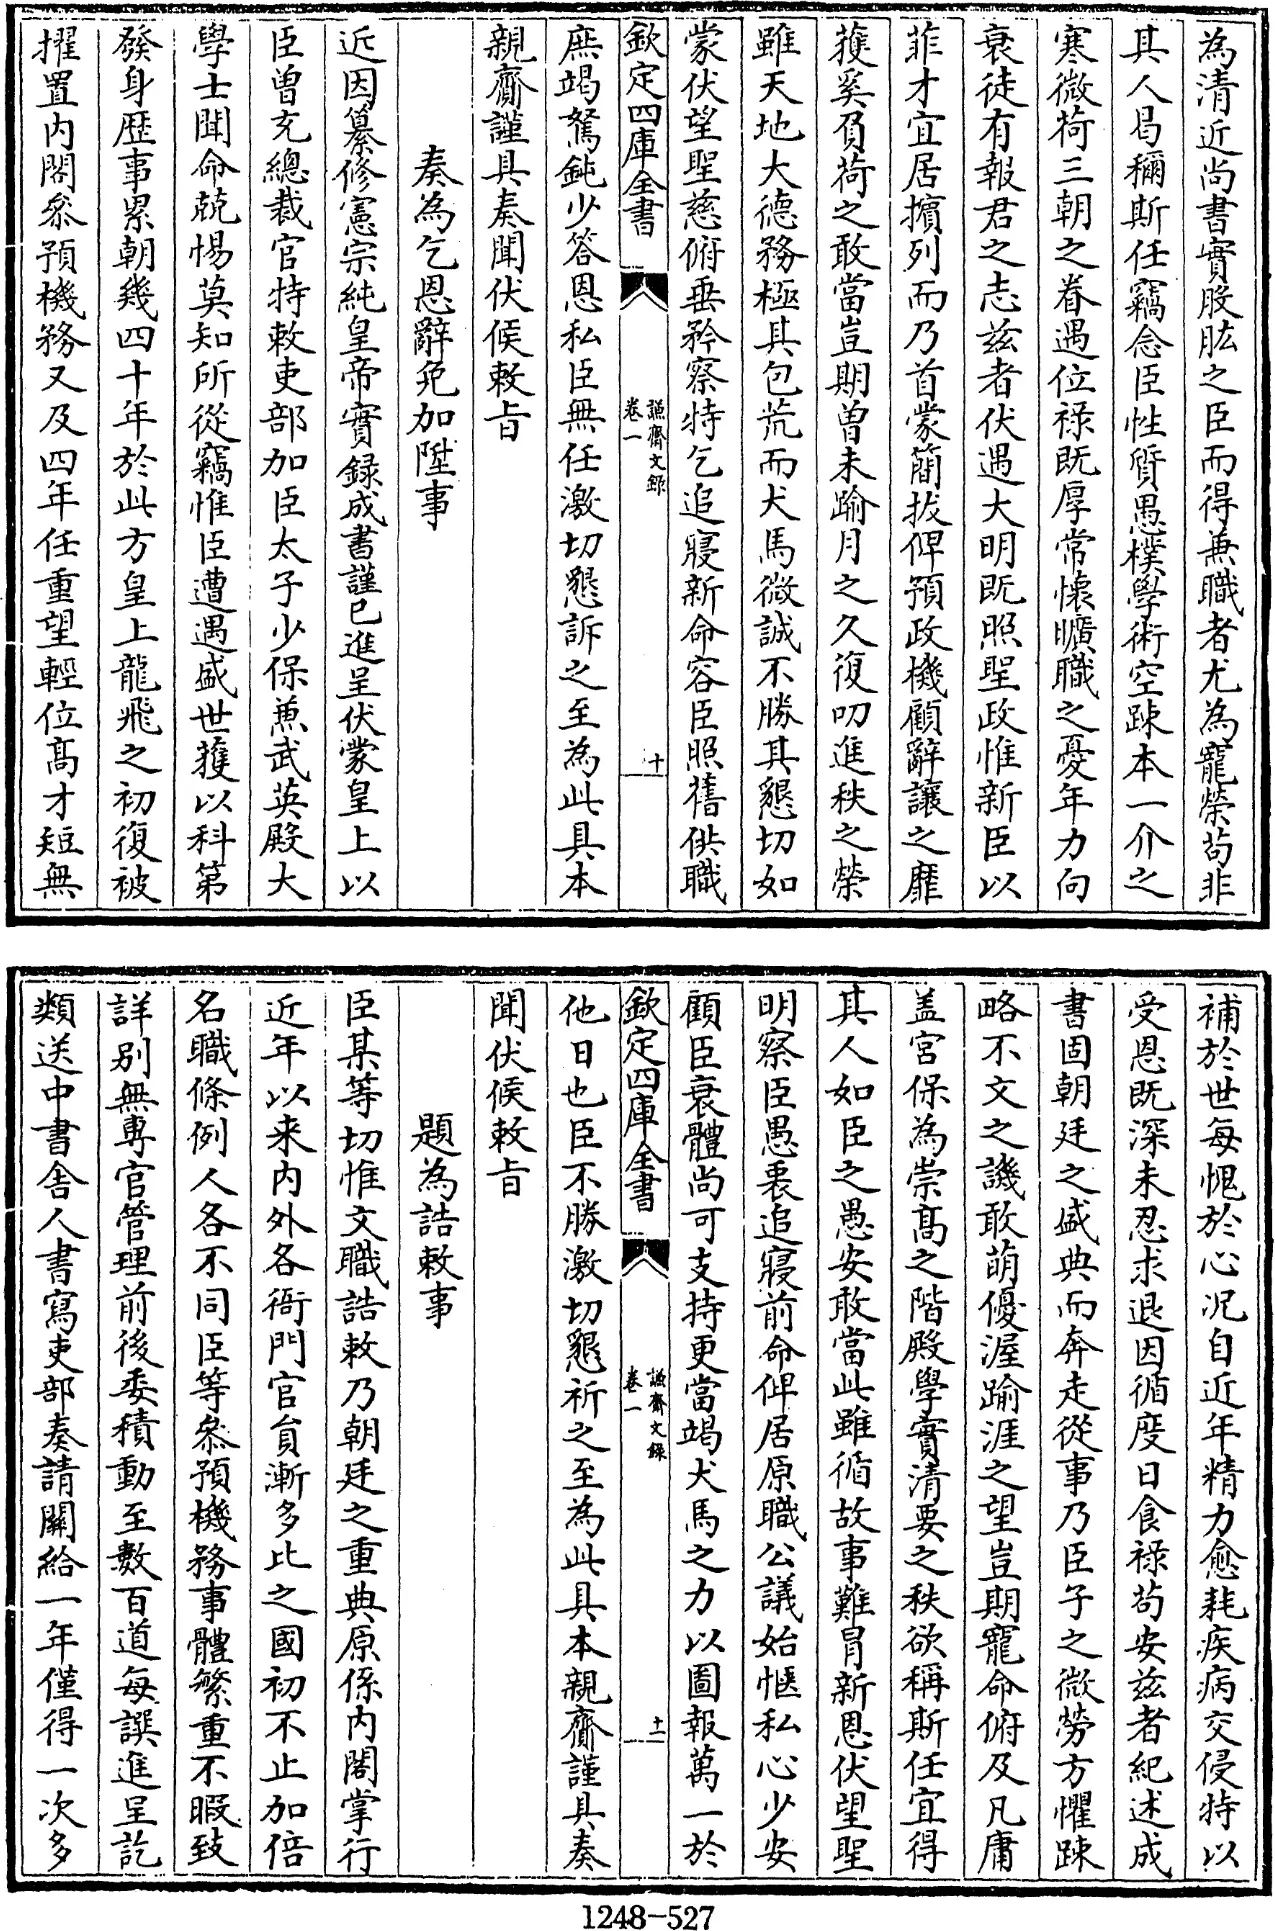 為清近尚書實股肱之臣而得兼職者尤為寵榮苟非
其人曷稱斯任竊念臣性質愚樸學術空踈本一介之
寒微荷三朝之眷遇位祿既厚常懷曠職之憂年力向
衰徒有報君之志兹者伏遇大明既照聖政惟新臣以
菲才宜居擯列而乃首蒙簡拔俾預政機顧辭讓之靡
獲奚負荷之敢當豈期曾未踰月之久復叨進秩之榮
雖天地大德務極其包荒而犬馬微誠不勝其懇切如
蒙伏望聖慈俯垂矜察特乞追寢新命容臣照舊供職
欽定四庫全書
謙齋文錄
卷一
十
庶竭駑鈍少答恩私臣無任激切懇訴之至為此具本
親齎謹具奏聞伏候敕旨
奏為乞恩辭免加陞事
近因纂修憲宗純皇帝實錄成書謹已進呈伏蒙皇上以
臣曾充總裁官特敕吏部加臣太子少保兼武英殿大
學士聞命兢惕莫知所從竊惟臣遭遇盛世獲以科第
發身歴事累朝幾四十年於此方皇上龍飛之初復被
擢置内閣叅預機務又及四年任重望輕位髙才短無
補於世每愧於心况自近年精力愈耗疾病交侵特以
受恩既深未忍求退因循度日食祿苟安兹者紀述成
書固朝廷之盛典而奔走從事乃臣子之微勞方懼踈
略不文之譏敢萌優渥踰涯之望豈期寵命俯及凡庸
盖宫保為崇髙之階殿學實清要之秩欲稱斯任宜得
其人如臣之愚安敢當此雖循故事難冒新恩伏望聖
明察臣愚衷追寢前命俾居原職公議始愜私心少安
顧臣衰體尚可支持更當竭犬馬之力以圖報萬一於
欽定四庫全書
謙齋文錄
卷一
十一
他日也臣不勝激切懇祈之至為此具本親齎謹具奏
聞伏候敕旨
題為誥敕事
臣某等切惟文職誥敕乃朝廷之重典原係内閣掌行
近年以来内外各衙門官員漸多比之國初不止加倍
名職條例人各不同臣等叅預機務事體繁重不暇致
詳别無專官管理前後委積動至數百道每譔進呈訖
類送中書舍人書寫吏部奏請關給一年僅得一次多
1248-527